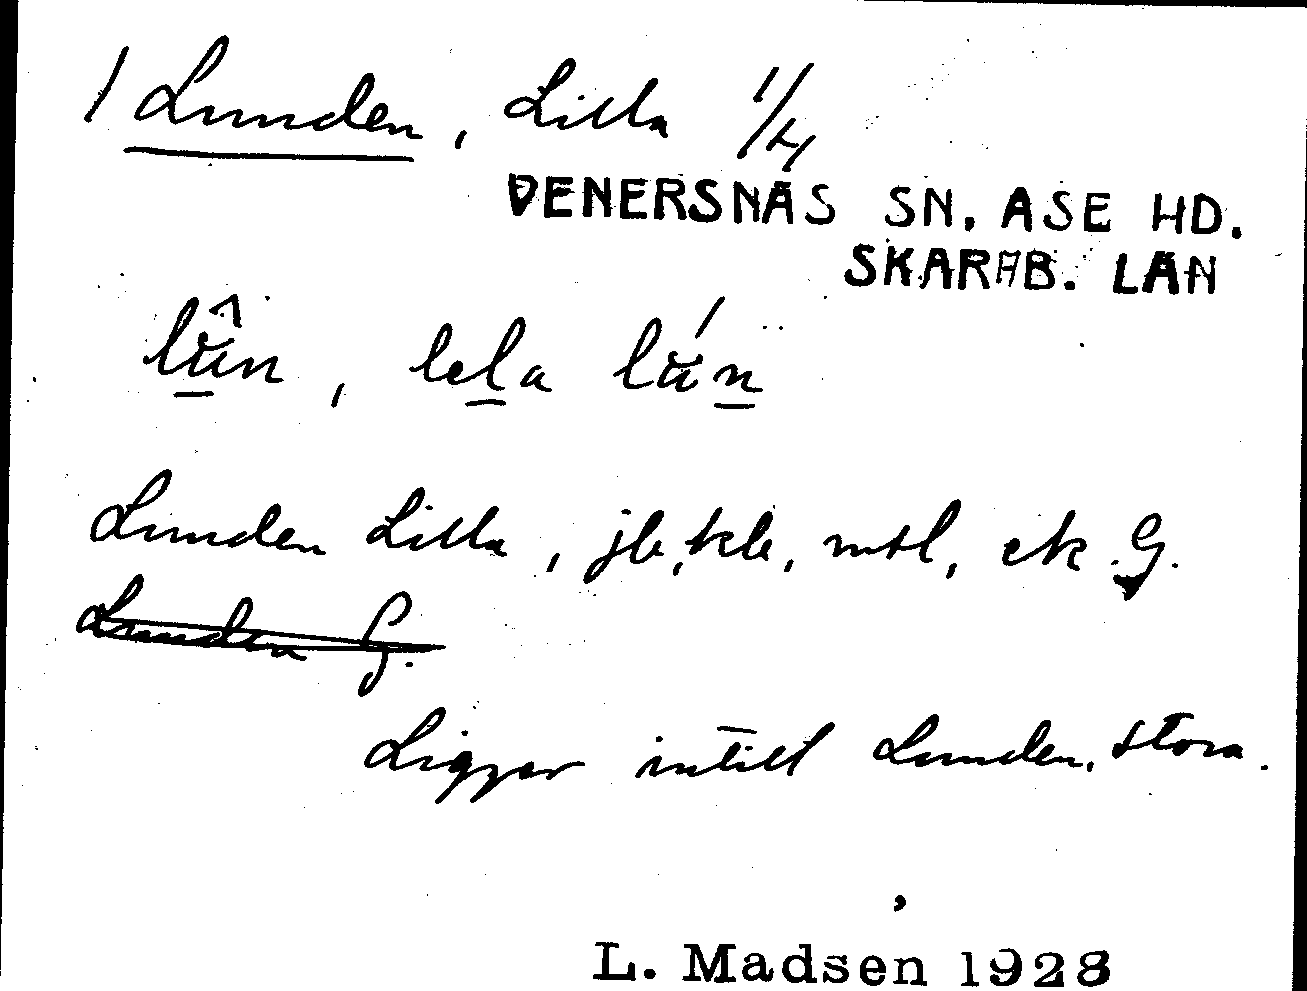 1 Lunden, Lilla 1/4
VENERSNÄS SN. ÅSE HD.
SKARAB. LÄN
lu̇̂n, lela lún
Lunden Lilla, jb, kb, mtl, ek. G.
Lunden G.
Ligger intill Lunden, Stora.
L. Madsen 1928